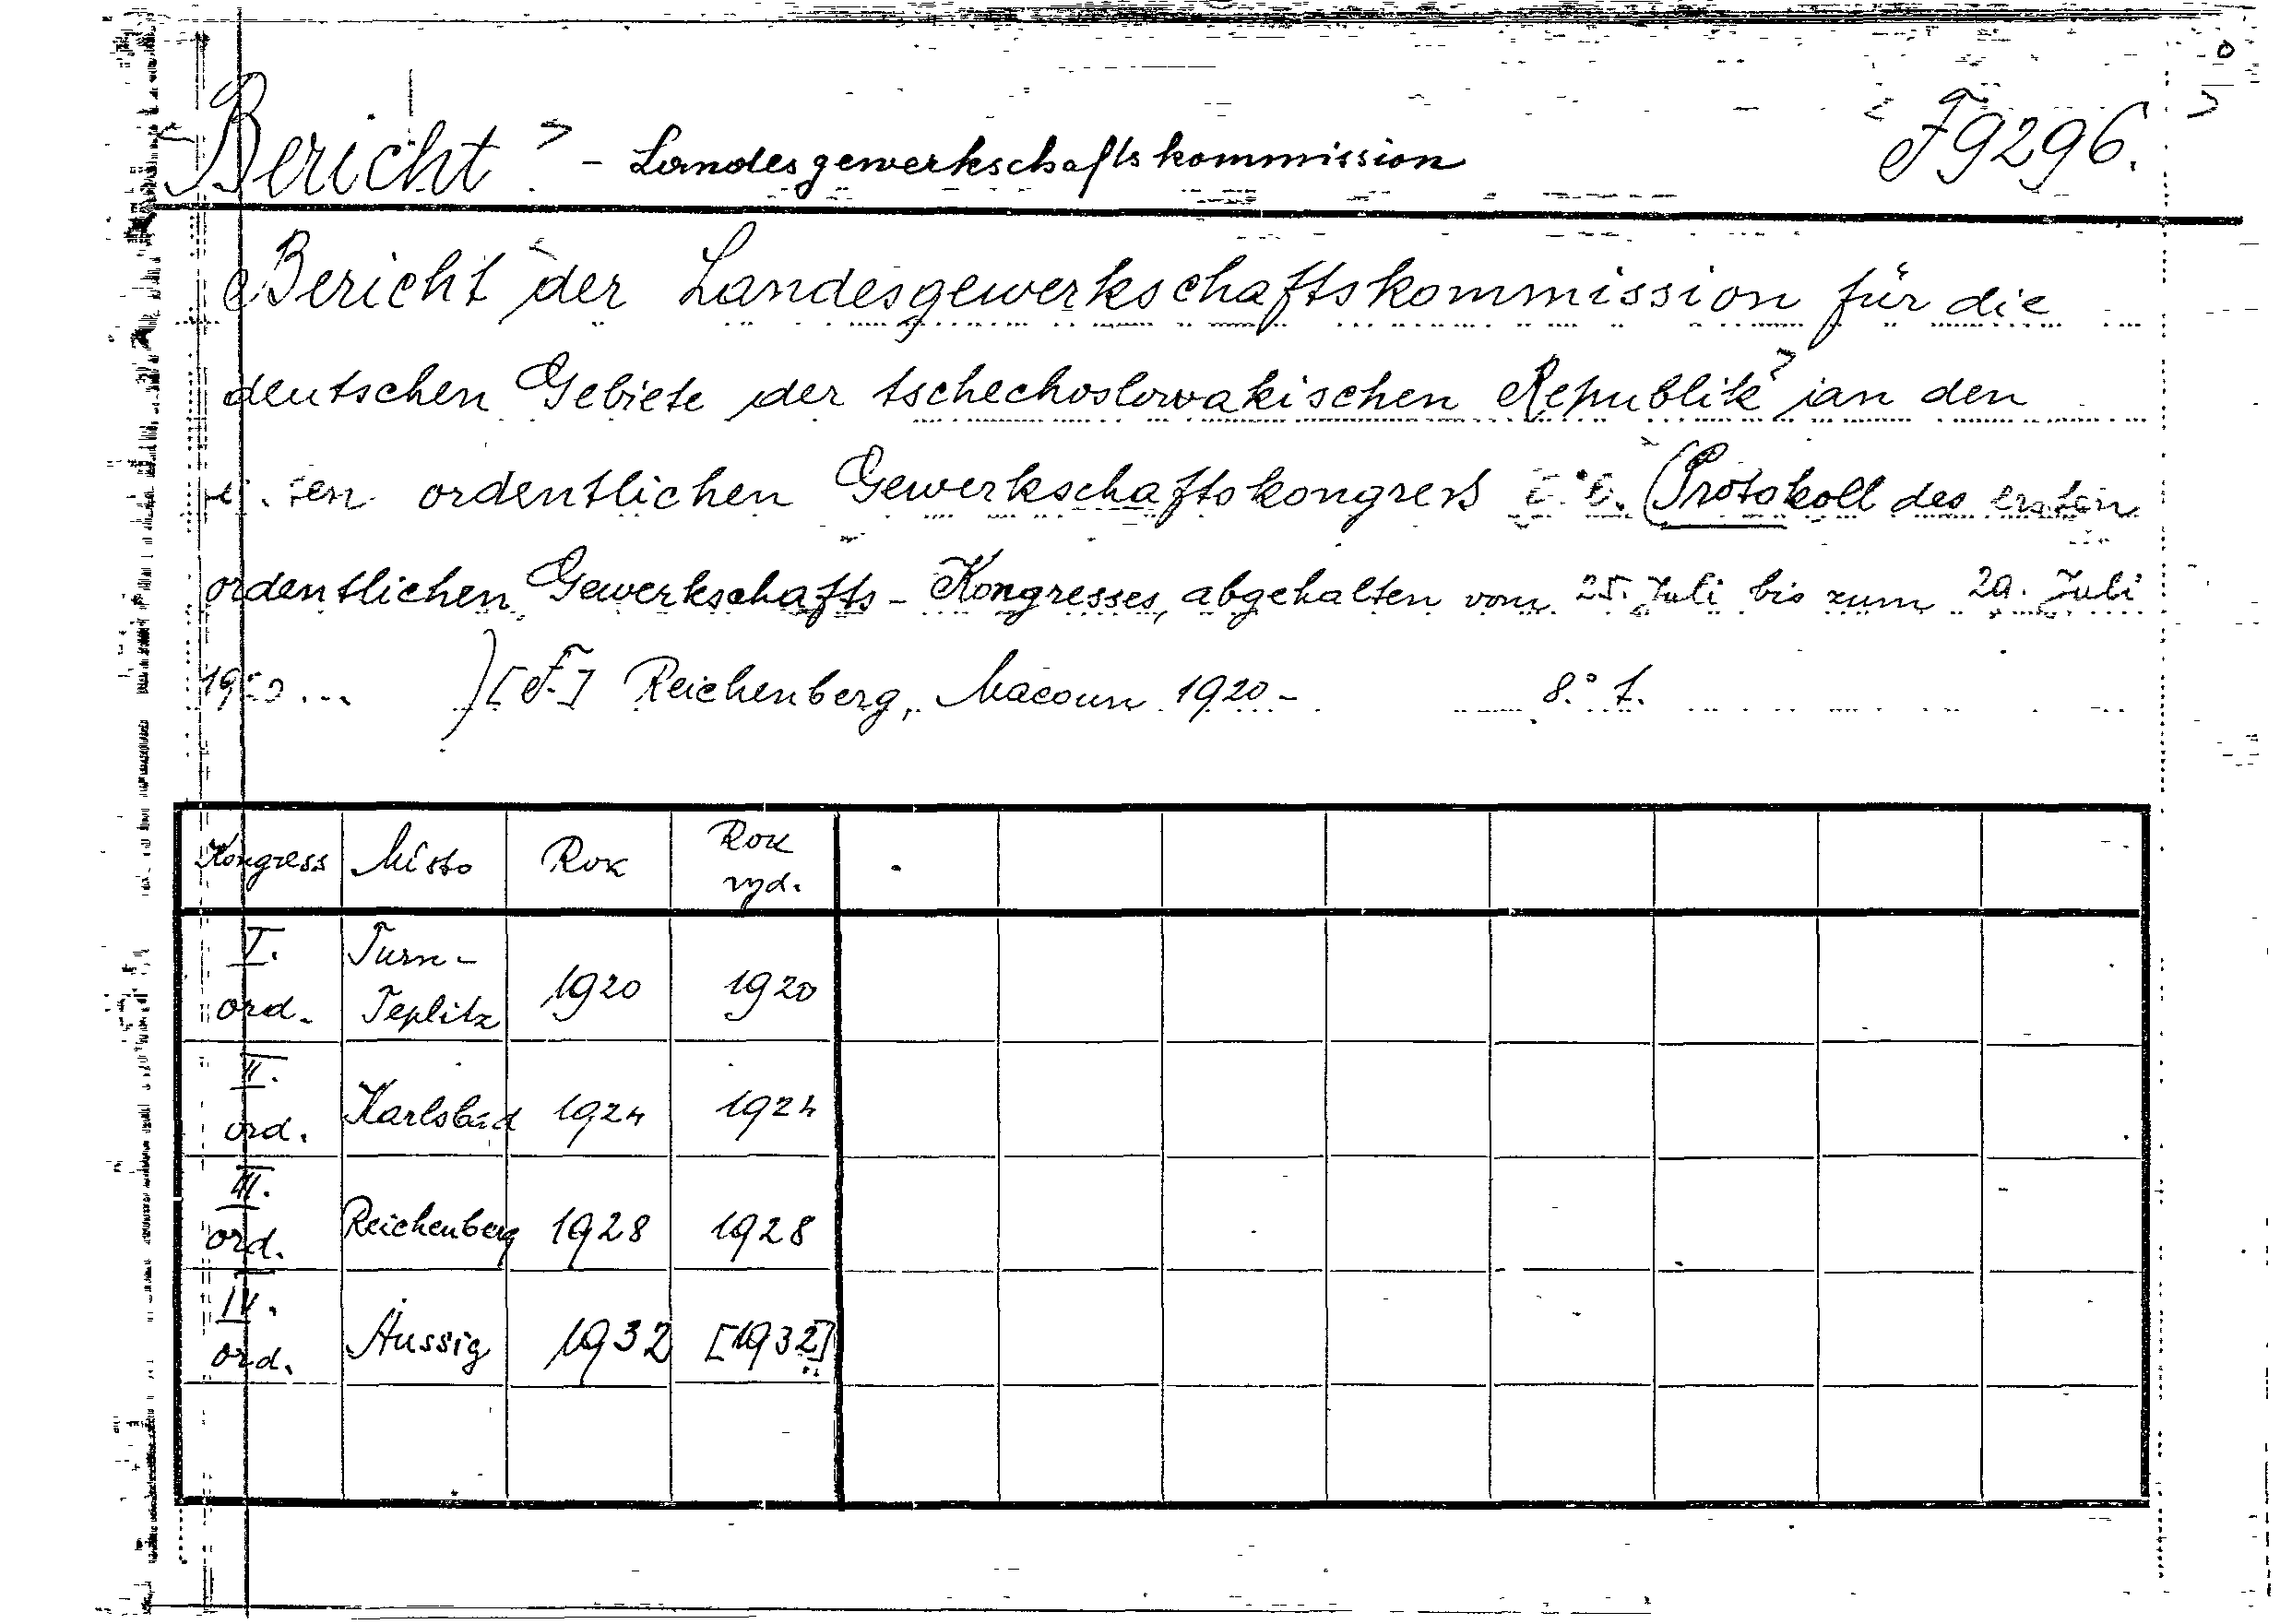 <Bericht> - Landesgewerkschaftskommission <F 9296.>
Bericht <der Landesgewerkschaftskommission für die
deutschen Gebiete der tschechoslowakischen Republik> an den
ordentlichen Gewerkschaftskongress (Protokoll des ersten
ordentlichen Gewerkschafts - Kongresses, abgehalten vom 25. Juli bis zum 29. Juli
1920 ... ) [F.] Reichenberg, Macoun 1920 - 8.° f.
Kongress Místo Rok Rok vyd.
I. ord. Turn-Teplitz 1920 1920
II. ord. Karlsbad 1924 1924
III. ord. Reichenberg 1928 1928
IV. ord. Aussig 1932 [1932]